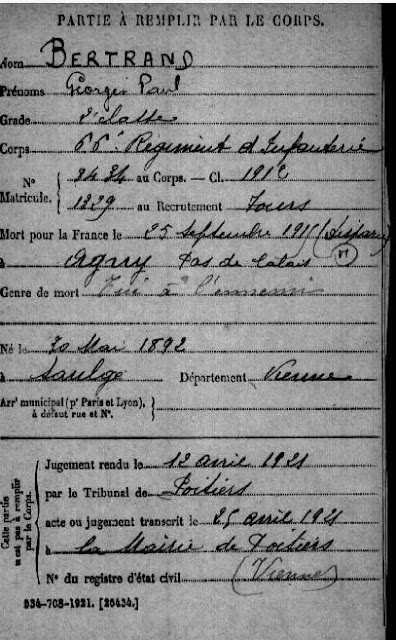 PARTIE À REMPLIR PAR LE CORPS.
Nom BERTRAND
Prénoms Georges Paul
Grade 2e classe
Corps 66e Regiment d'Infanterie
N° Matricule. 8484 au Corps. — Cl. 1912
1329 au Recrutement Tours
Mort pour la France le 25 septembre 1915 (disparu)
à Agny Pas de Calais
Genre de mort Tué à l'ennemi
Né le 30 Mai 1892
à Saulgé Département Vienne
Arrt municipal (pr Paris et Lyon), à défaut rue et N°.
Cette partie n'est pas à remplir par le Corps.
Jugement rendu le 12 avril 1921
par le Tribunal de Poitiers
acte ou jugement transcrit le 25 avril 1921
à la Mairie de Poitiers
N° du registre d'état civil (Vienne)
534-708-1921. [26434.]